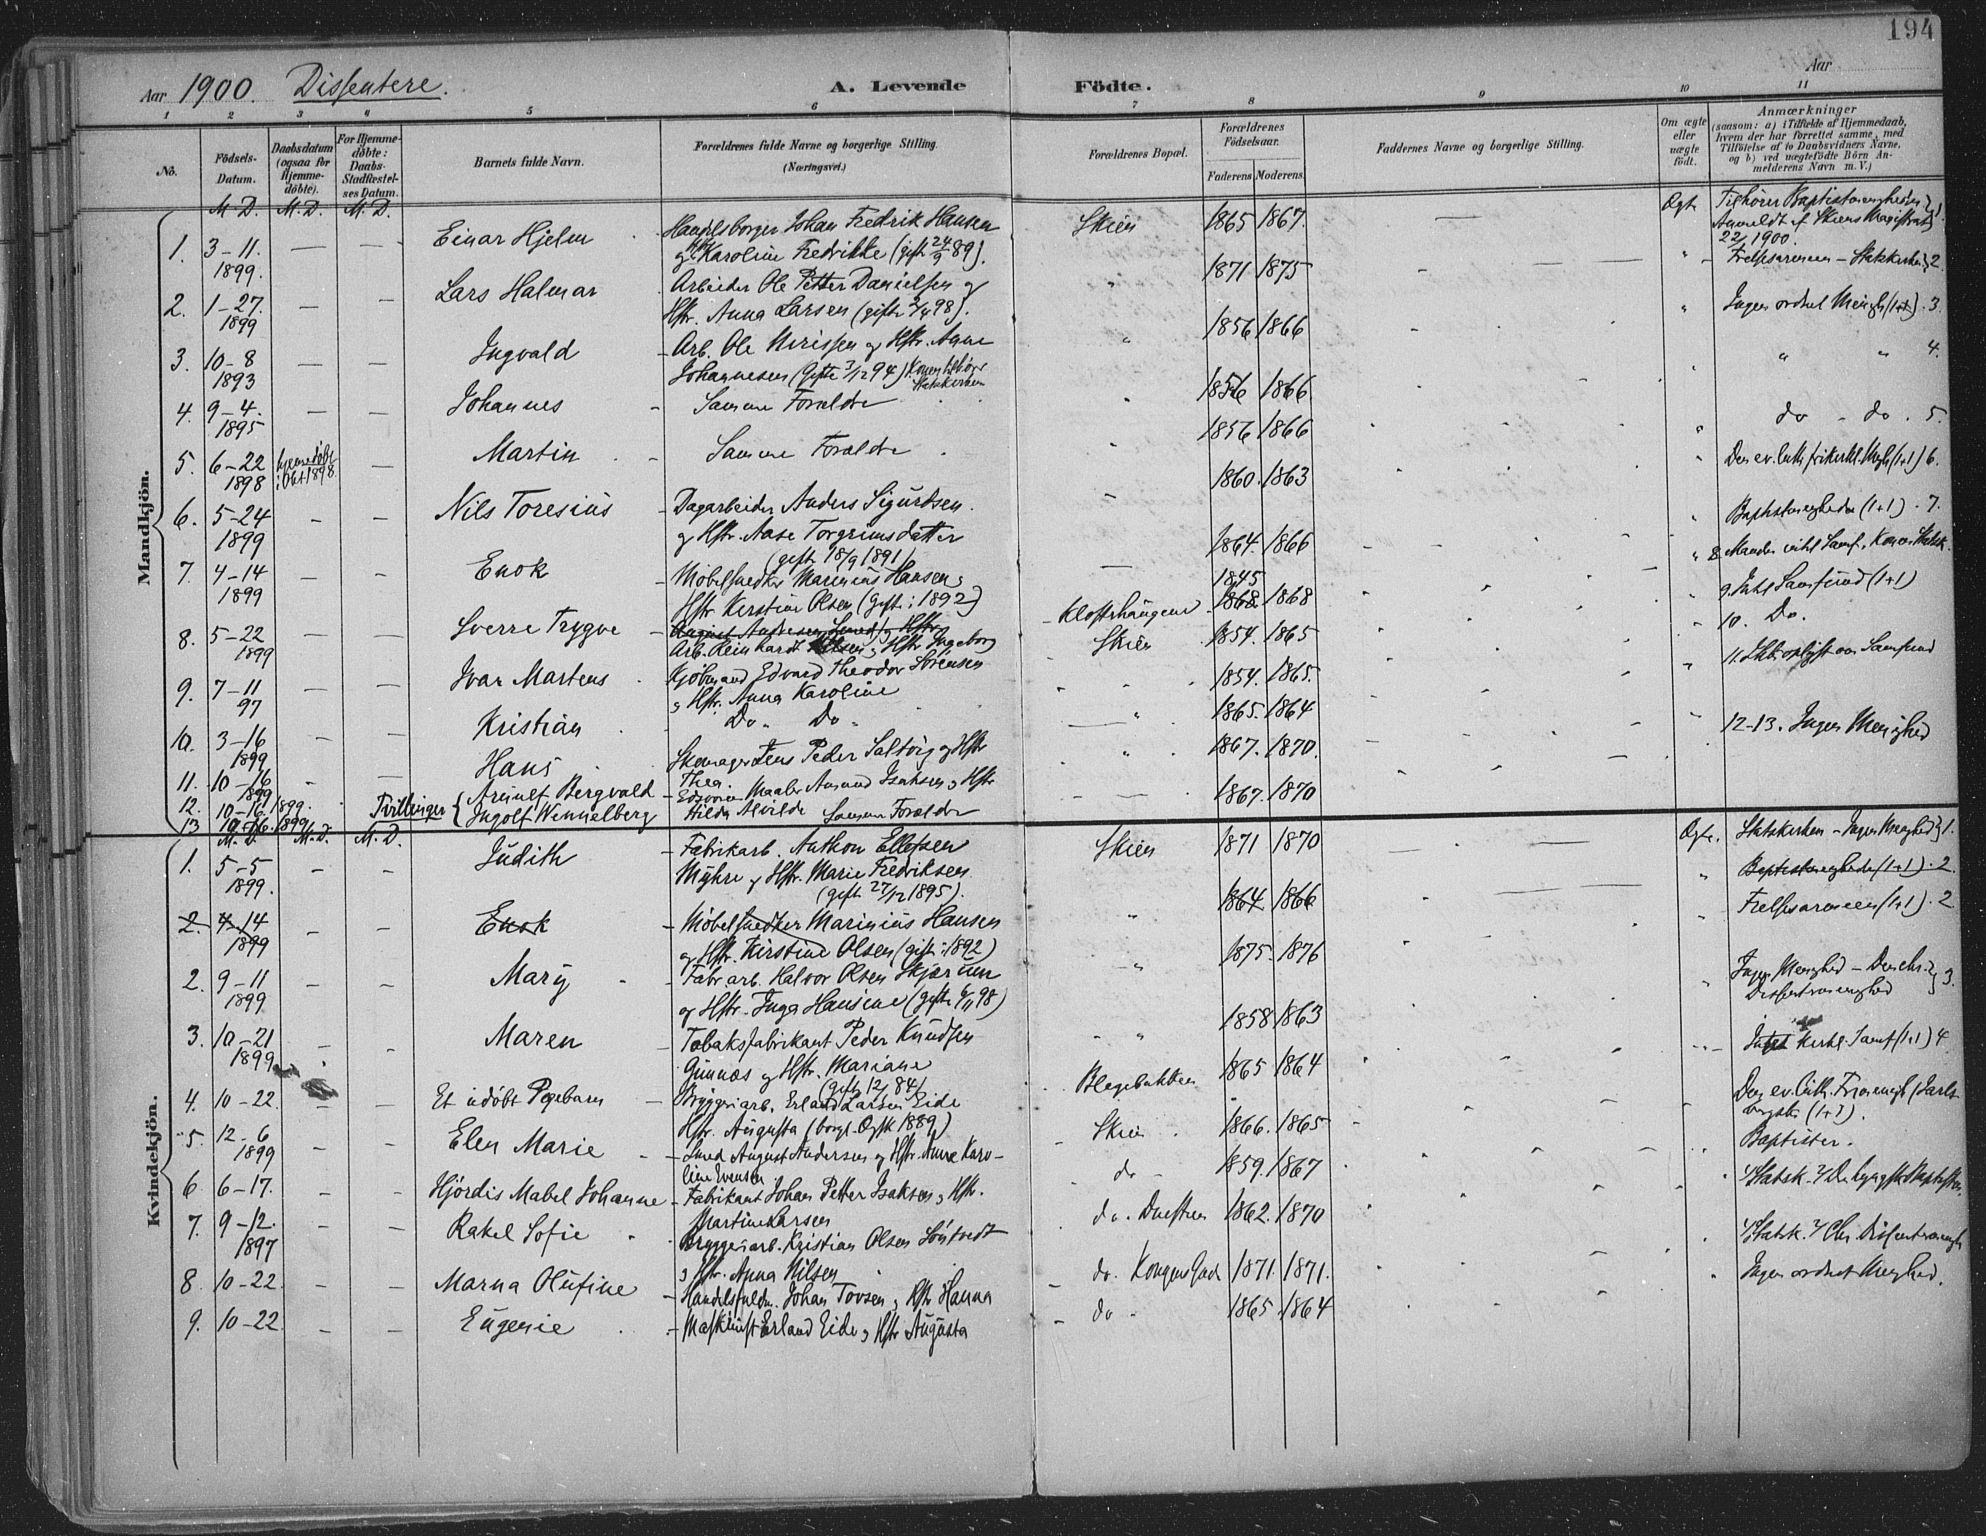 194
Aar 1900. Dissentere. A. Levende Födte. Aar
1 2 3 4 5 6 7 8 9 10 11
No. Födsels-Datum. Daabsdatum (ogsaa for Hjemmedöbte). For Hjemmedöbte: Daabs-Stadfæstelses Datum. Barnets fulde Navn. Forældrenes fulde Navne og borgerlige Stilling. (Næringsvei.) Forældrenes Bopæl. Forældrenes Födselsaar. Faderens. Moderens. Faddernes Navne og borgerlige Stilling. Om ægte eller uægte födt. Anmærkninger (saasom: a) i Tilfælde af Hjemmedaab, hvem der har forrettet samme, med Tilföielse af to Daabsvidners Navne, og b) ved uægtefödte Börn Anmelderens Navn m. V.)
M. D. M. D. M. D.
Mandkjön.
1. 3-11. 1899. Einar Hjelm Handelsborger Johan Fredrik Hansen og Karoline Fredrikke (gift 24/9 89). Skien 1865 1867. Ægte Tilhører Baptistmenigheden Anmeldt af Skiens Magistrat 22/1 1900. 1.
2. 1-27. 1899 Lars Halmar Arbeider Ole Petter Danielsen og Hstr. Anna Larsen (gift 2/4 98). " 1871 1875 " Frelsarmeen - Statskirken 2.
3. 10-8 1893 Ingvald Arb. Ole Nirissen og Hstr. Anne Johannesen (Gifte 3/12 94) Konen tilhører Statskirken " 1856 1866 " Ingen ordnet Menigh (1+1). 3.
4. 9-4. 1895 Johannes Samme Forældre " 1856 1866 " " 4.
5. 6-22 1898 hjemmedøbt i Okt 1898 Martin Samme Forældre " 1856 1866 " do - do. 5.
6. 5-24 1899 Nils Toresius Dagarbeider Anders Sigurdsen og Hstr. Aase Torgrimsdatter (gift 18/9 1891) " 1860. 1863 " Den ev. luth frikirkl. Megh (1+1) 6.
7. 4-14 1899 Enok Möbelsnedker Marinius Hansen, Hstr Kirstine Olsen (gift i 1892) 1864. 1866 " Baptistmenigheden (1+1). 7.
8. 5-22 1899 Sverre Trygve August Andersen Smed og Hstr Arb. Reinhardt og Hstr Ingeborg Klosterhaugen 1845 1868. 1868 8. Manden intet Samf. Konen Statsk.
9. 7-11 97 Ivar Martens Kjöbmand Edvard Theodor Sörensen og Hstr. Anna Karoline Skien 1854. 1865 9. Intet Samfund (1+1)
10. 3-16 1899 Kristian Do. Do. " 1854. 1865. 10. Do.
11. 10-16 1899 Hans Skomager Jens Peder Saltvig og Hstr Thea. " 1865. 1864 11. oplyst om Samfund
12. 10-16. 1899. Tvillinger Arnulf Bergvald Maaler Amund Isaksen og Hstr Hilda Alvilde 1867. 1870. 12-13. Ingen Menighed
13 10-16. 1899 Ingolf Wennelberg Samme Forældre 1867. 1870
M. D. M. D. M. D.
Kvindekjön.
1. 5-5 1899. Judith Fabrikarb. Anthon Ellefsen Myhre og Hstr. Marie Fredriksen (gift 27/12 1895). Skien 1871 1870 Ægte. Statskirken - Ingen Menighed 1.
2. 4-14 1899 Enok Möbelsnedker Marinius Hansen og Hstr. Kirstine Olsen (gift i 1892) " 1864 1866 " Baptistmenigheden (1+1). 2.
2. 9-11 1899 Mary Fabr. arb. Halvor Olsen Skjærum og Hstr. Inga Hansine (gift 6/11 98) " 1875. 1876 " Frelsarmeen (1+1). 2
3. 10-21 1899 Maren Tobaksfabrikant Peder Knudsen Gunnæs og Hstr. Mariane (gift 84) " " 1858 1863 " Ingen Menighed - Den chr. Dissentermenighed 3.
4. 10-22. Et udöbt Pigebarn Bryggeriarb. Erland Larsen Eide Hstr. Augusta (borgl. Ægsk 1889) Blegebakken 1865 1864 Intet kirkl. Samf (1+1) 4
5. 12-6 1899 Elen Marie Smed August Andersen og Hstr. Anne Karoline Evensen Skien 1866. 1865 Den ev. luth. Frimenigh (Jarlsbergske (1+1).
6 6-17. Hjördis Mabel Johanne Fabrikant Johan Petter Isaksen og Hstr. Martine Larsen do 1859. 1867 Baptister.
7. 9-12. 1897 Rakel Sofie Bryggeriarb. Kristian Olsen Söntvedt og Hstr. Anna Nilsen do. 1862. 1870 Statsk.
8. 10-22. Marna Olufine Handelsfuldm. Johan Tovsen og Hstr Hanna do. Kongens Gad 1871. 1871. Statsk. Chr. Dissentermenigh
9. 10-22. Eugenie Maskinist Erland Eide og Hstr Augusta do 1865. 1864 Ingen ordnet Menighed.